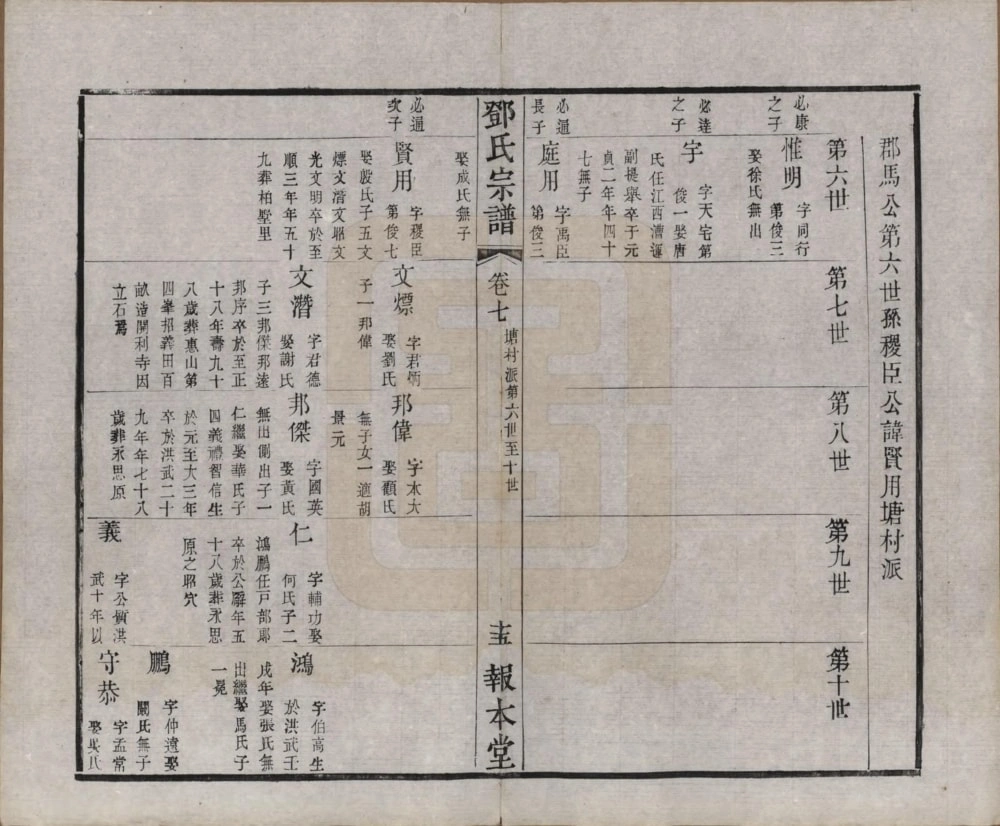 郡馬公第六世孫稷臣公諱賢用塘村派
第六世
第七世
第八世
第九世
第十世
必康
之子
惟明
字同行
第俊三
娶徐氏無出
必達
之子
宇
字天宅第
俊一娶唐
氏任江西漕運
副提舉卒于元
貞二年年四十
七無子
必通
長子
庭用
字禹臣
第俊三
鄧氏宗譜
卷七
塘村派第六世至十世
十五
報本堂
娶成氏無子
必通
次子
賢用
字稷臣
第俊七
娶殷氏子五文
熛文潛文昭文
光文明卒於至
順三年年五十
九葬柏墅里
文熛
字君炳
娶劉氏
子一邦偉
文潛
字君德
娶謝氏
子三邦傑邦逵
邦序卒於至正
十八年壽九十
八歲葬惠山第
四峯招義田百
畝造開利寺因
立石焉
邦偉
字本大
娶顧氏
無子女一適胡
景元
邦傑
字國英
娶黃氏
無出側出子一
仁繼娶華氏子
四義禮智信生
於元至大三年
卒於洪武二十
九年年七十八
歲葬永思原
仁
字輔功娶
何氏子二
鴻鵬任戸部郎
卒於公廨年五
十八歲葬永思
原之昭穴
義
字公質洪
武十年以
鴻
字伯高生
於洪武壬
戌年娶張氏無
出繼娶馬氏子
一冕
鵬
字仲遠娶
關氏無子
守恭
字孟常
娶吳氏